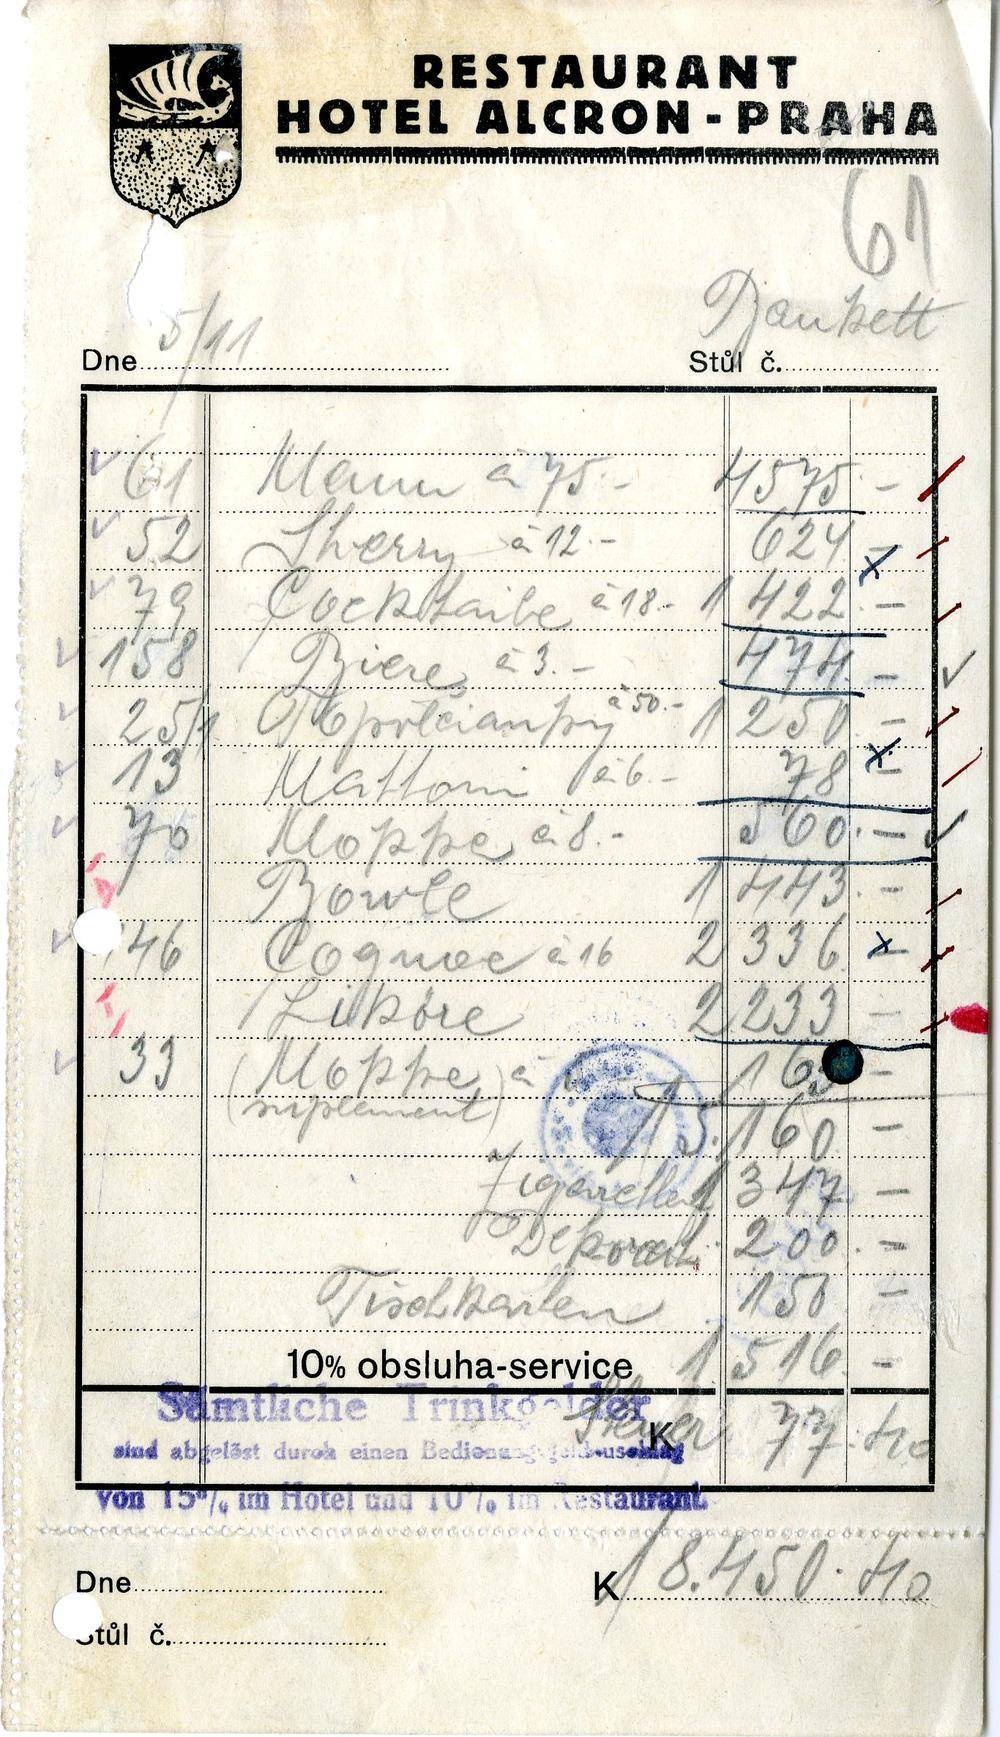 RESTAURANT
HOTEL ALCRON - PRAHA
61
Bankett
Dne 5/11 Stůl č.
61 Menu à 75.- 4575.-
52 Sherry à 12.- 624.-
79 Cocktaile à 18.- 1422.-
158 Biere à 3.- 474.-
25/1 à 50.- 1250.-
13 Mattoni à 6.- 78.-
70 Mokka à 8.- 560.-
Bowle 1443.-
146 Cognac à 16 2336.-
Liköre 2233.-
33 (Mokka à 165.-
(suplement)
15.160.-
Zigaretten 1347.-
Dekorat. 200.-
Tischkarten 150.-
10% obsluha-service 1516.-
Sämtliche Trinkgelder
K Steuer 77.40
sind abgelöst durch einen Bedienungsgeldzuschlag
von 15% im Hotel und 10% im Restaurant.
Dne K 18.450.40
Stůl č.